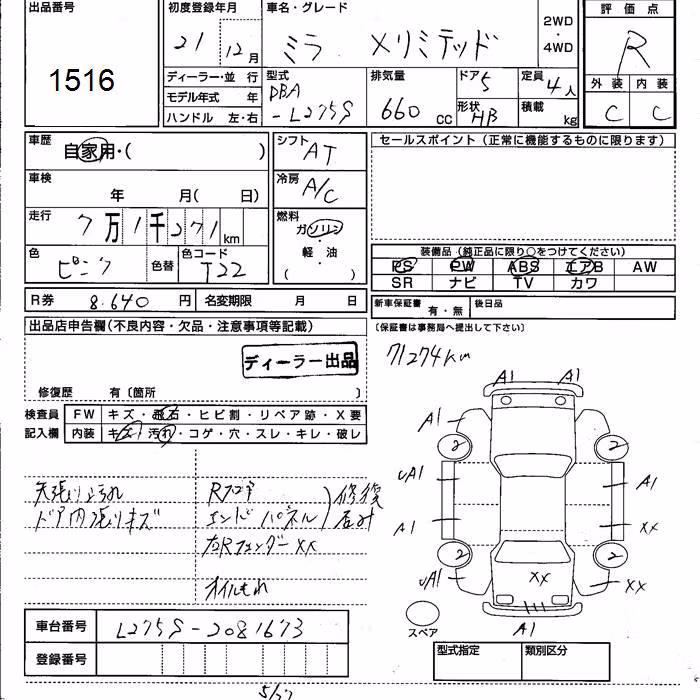 出品番号
1516
初度登録年月
21 12月
車名・グレード
ミラ Xリミテッド
2WD
・
4WD
評価点
R
外装 内装
C C
ディーラー・並 行
モデル年式 年
ハンドル 左・右
型式
DBA
-L275S
排気量
660 cc
ドア 5
形状 HB
定員 4人
積載 kg
車歴
自家用・( )
シフト AT
車検
年 月( 日)
冷房 A/C
走行
7万1千271 km
燃料
ガソリン
・
軽 油
( ・ )
色
ピンク
色替
色コード
T22
R券 8.640 円
名変期限 月 日
セールスポイント(正常に機能するものに限ります)
装備品(純正品に限り○をつけてください)
PS PW ABS エアB AW
SR ナビ TV カワ
新車保証書 有・無
後日品
(保証書は事務局へ提出して下さい)
出品店申告欄(不良内容・欠品・注意事項等記載)
ディーラー出品
修復歴 有〔箇所 〕
検査員
記入欄
FW キズ・飛石・ヒビ割・リペア跡・X要
内装 キズ・汚れ・コゲ・穴・スレ・キレ・破レ
天張り汚れ
ドア内張りキズ
Rフロア
エンドパネル
修復
歪み
右RフェンダーXX
オイルもれ
71274km
A1 A1
A1
2 2
uA1 A1
A1 XX
2 2
uA1 XX XX
スペア
A1
車台番号 L275S-2081673
登録番号
型式指定 類別区分